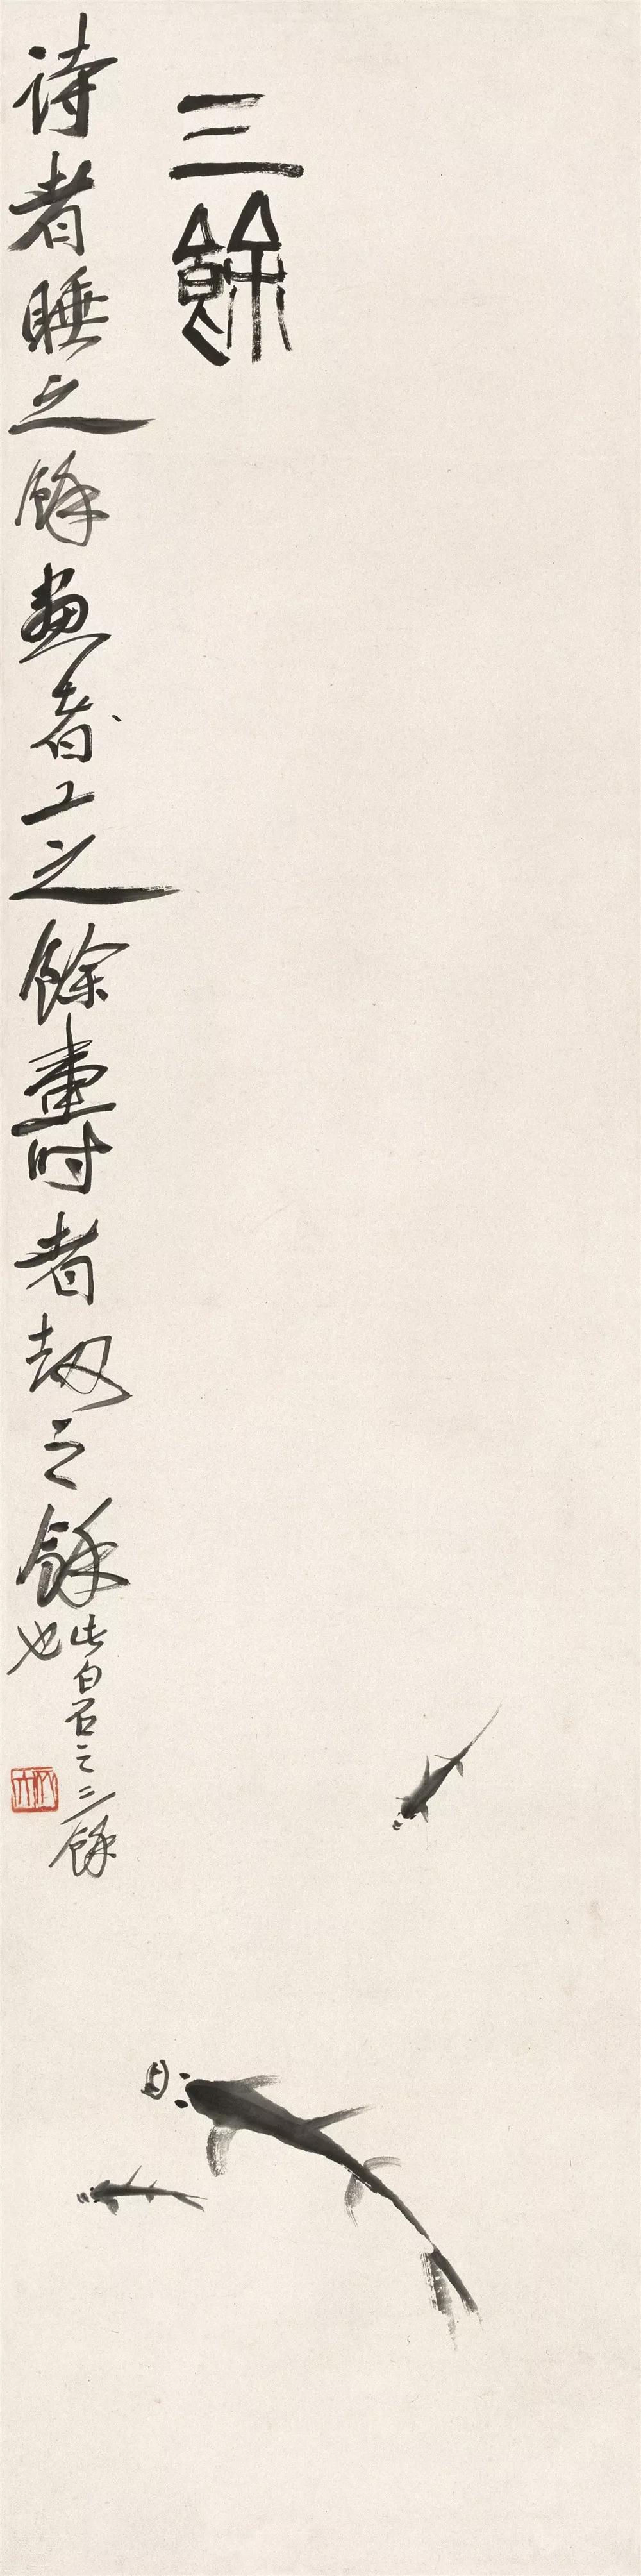 三餘
詩者睡之餘畫者工之餘壽者劫之餘
此白石之三餘
也